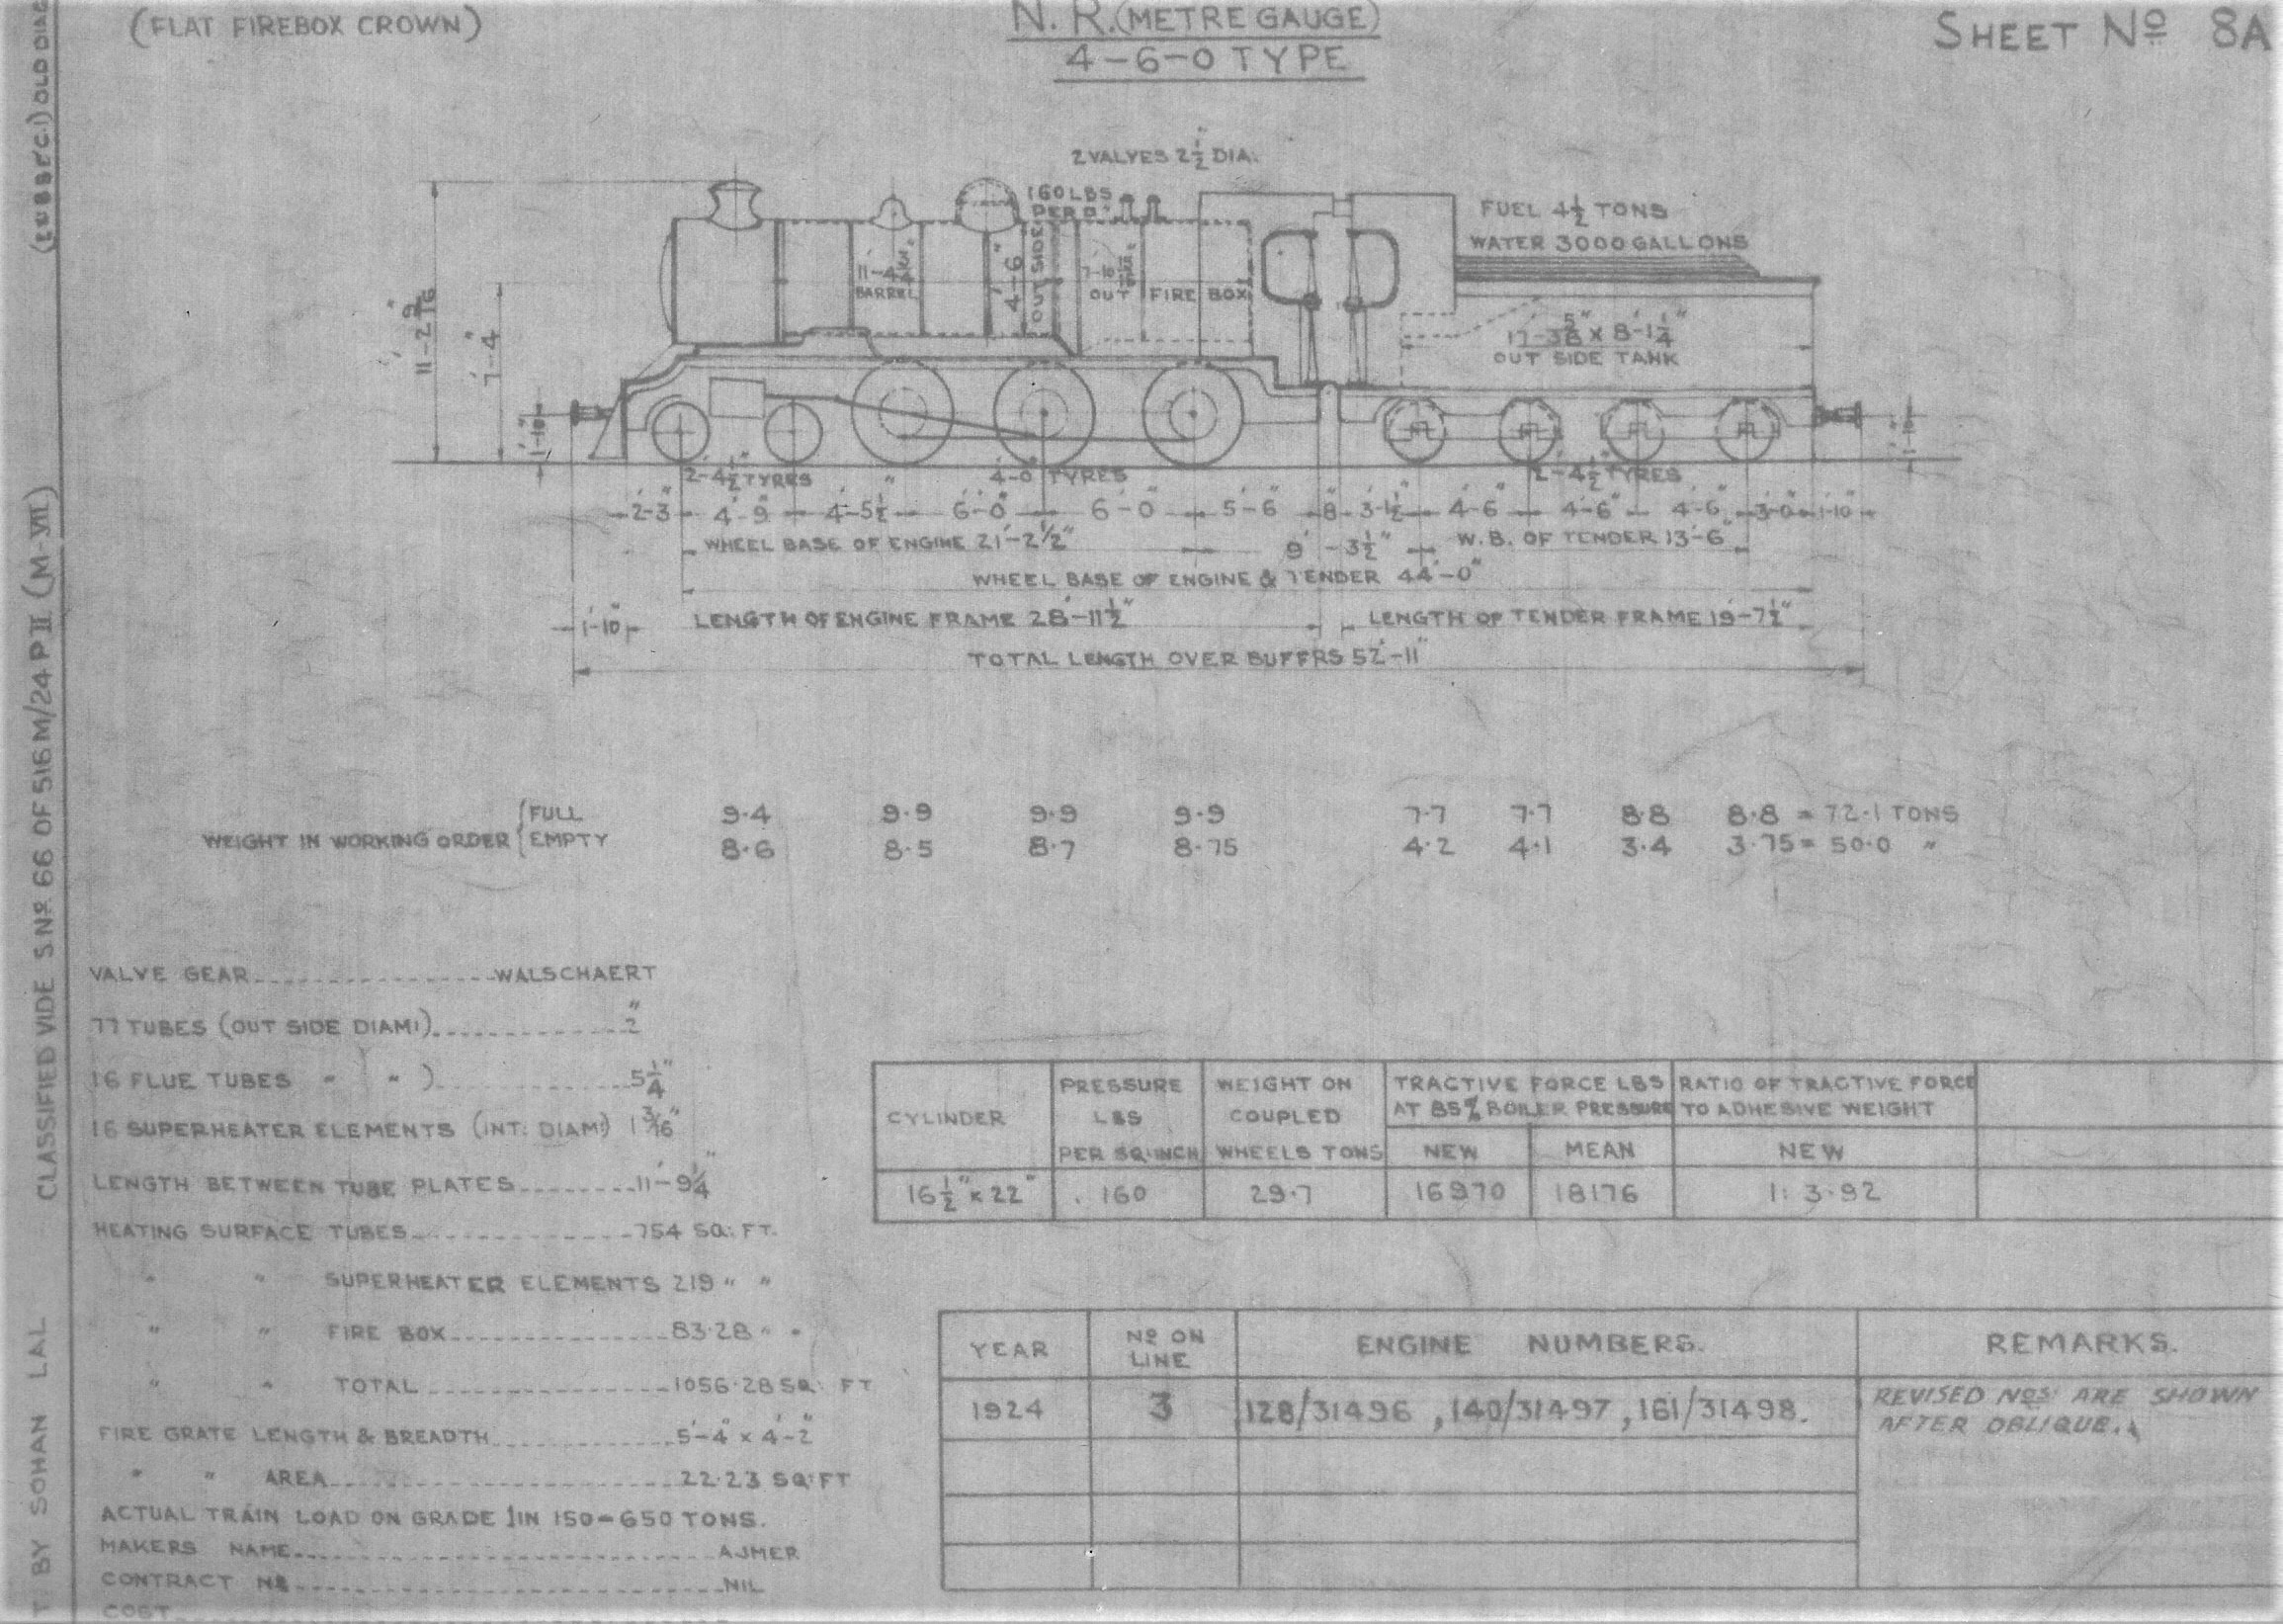 (FLAT FIREBOX CROWN)
N. R. (METRE GAUGE)
4-6-0 TYPE
SHEET Nº 8A
2 VALVES 2½" DIA.
160 LBS
PER □"
FUEL 4½ TONS
WATER 3000 GALLONS
11'-4
BARREL
4'-6"
OUT SIDE
7-10
OUT FIRE BOX
17'-3⅝" x 8'-1¼"
OUT SIDE TANK
11'-2 9/16"
7'-4"
1'-10"
2'-4½" TYRES
4'-0" TYRES
2'-4½" TYRES
2'-3" 4'-9" 4'-5½" 6'-0" 6'-0" 5'-6" 8" 3'-1½" 4'-6" 4'-6" 4'-6" 3'-0" 1'-10"
WHEEL BASE OF ENGINE 21'-2½" 9'-3½" W.B. OF TENDER 13'-6"
WHEEL BASE OF ENGINE & TENDER 44'-0"
1'-10" LENGTH OF ENGINE FRAME 28'-11½" LENGTH OF TENDER FRAME 19'-7½"
TOTAL LENGTH OVER BUFFRS 52'-11"
WEIGHT IN WORKING ORDER
FULL 9.4 9.9 9.9 9.9 7.7 7.7 8.8 8.8 = 72.1 TONS
EMPTY 8.6 8.5 8.7 8.75 4.2 4.1 3.4 3.75 = 50.0 "
VALVE GEAR WALSCHAERT
77 TUBES (OUT SIDE DIAM:) 2"
16 FLUE TUBES " " ) 5¼"
16 SUPERHEATER ELEMENTS (INT: DIAM:) 1 3/16"
LENGTH BETWEEN TUBE PLATES 11'-9¼"
HEATING SURFACE TUBES 754 SQ: FT.
" " SUPERHEATER ELEMENTS 219 " "
" " FIRE BOX 83.28 " "
" " TOTAL 1056.28 SQ: FT
FIRE GRATE LENGTH & BREADTH 5'-4" x 4'-2"
" " AREA 22.23 SQ: FT
ACTUAL TRAIN LOAD ON GRADE 1 IN 150 - 650 TONS.
MAKERS NAME AJMER
CONTRACT Nº NIL
COST
CYLINDER
PRESSURE LBS PER SQ: INCH
WEIGHT ON COUPLED WHEELS TONS
TRACTIVE FORCE LBS AT 85% BOILER PRESSURE
RATIO OF TRACTIVE FORCE TO ADHESIVE WEIGHT
NEW MEAN NEW
16½" x 22" 160 29.7 16970 18176 1: 3.92
YEAR Nº ON LINE ENGINE NUMBERS. REMARKS.
1924 3 128/31496, 140/31497, 161/31498.
REVISED NOS: ARE SHOWN
AFTER OBLIQUE.
T. BY SOHAN LAL CLASSIFIED VIDE S Nº 66 OF 516 M/24 P II (M-VII) OLD